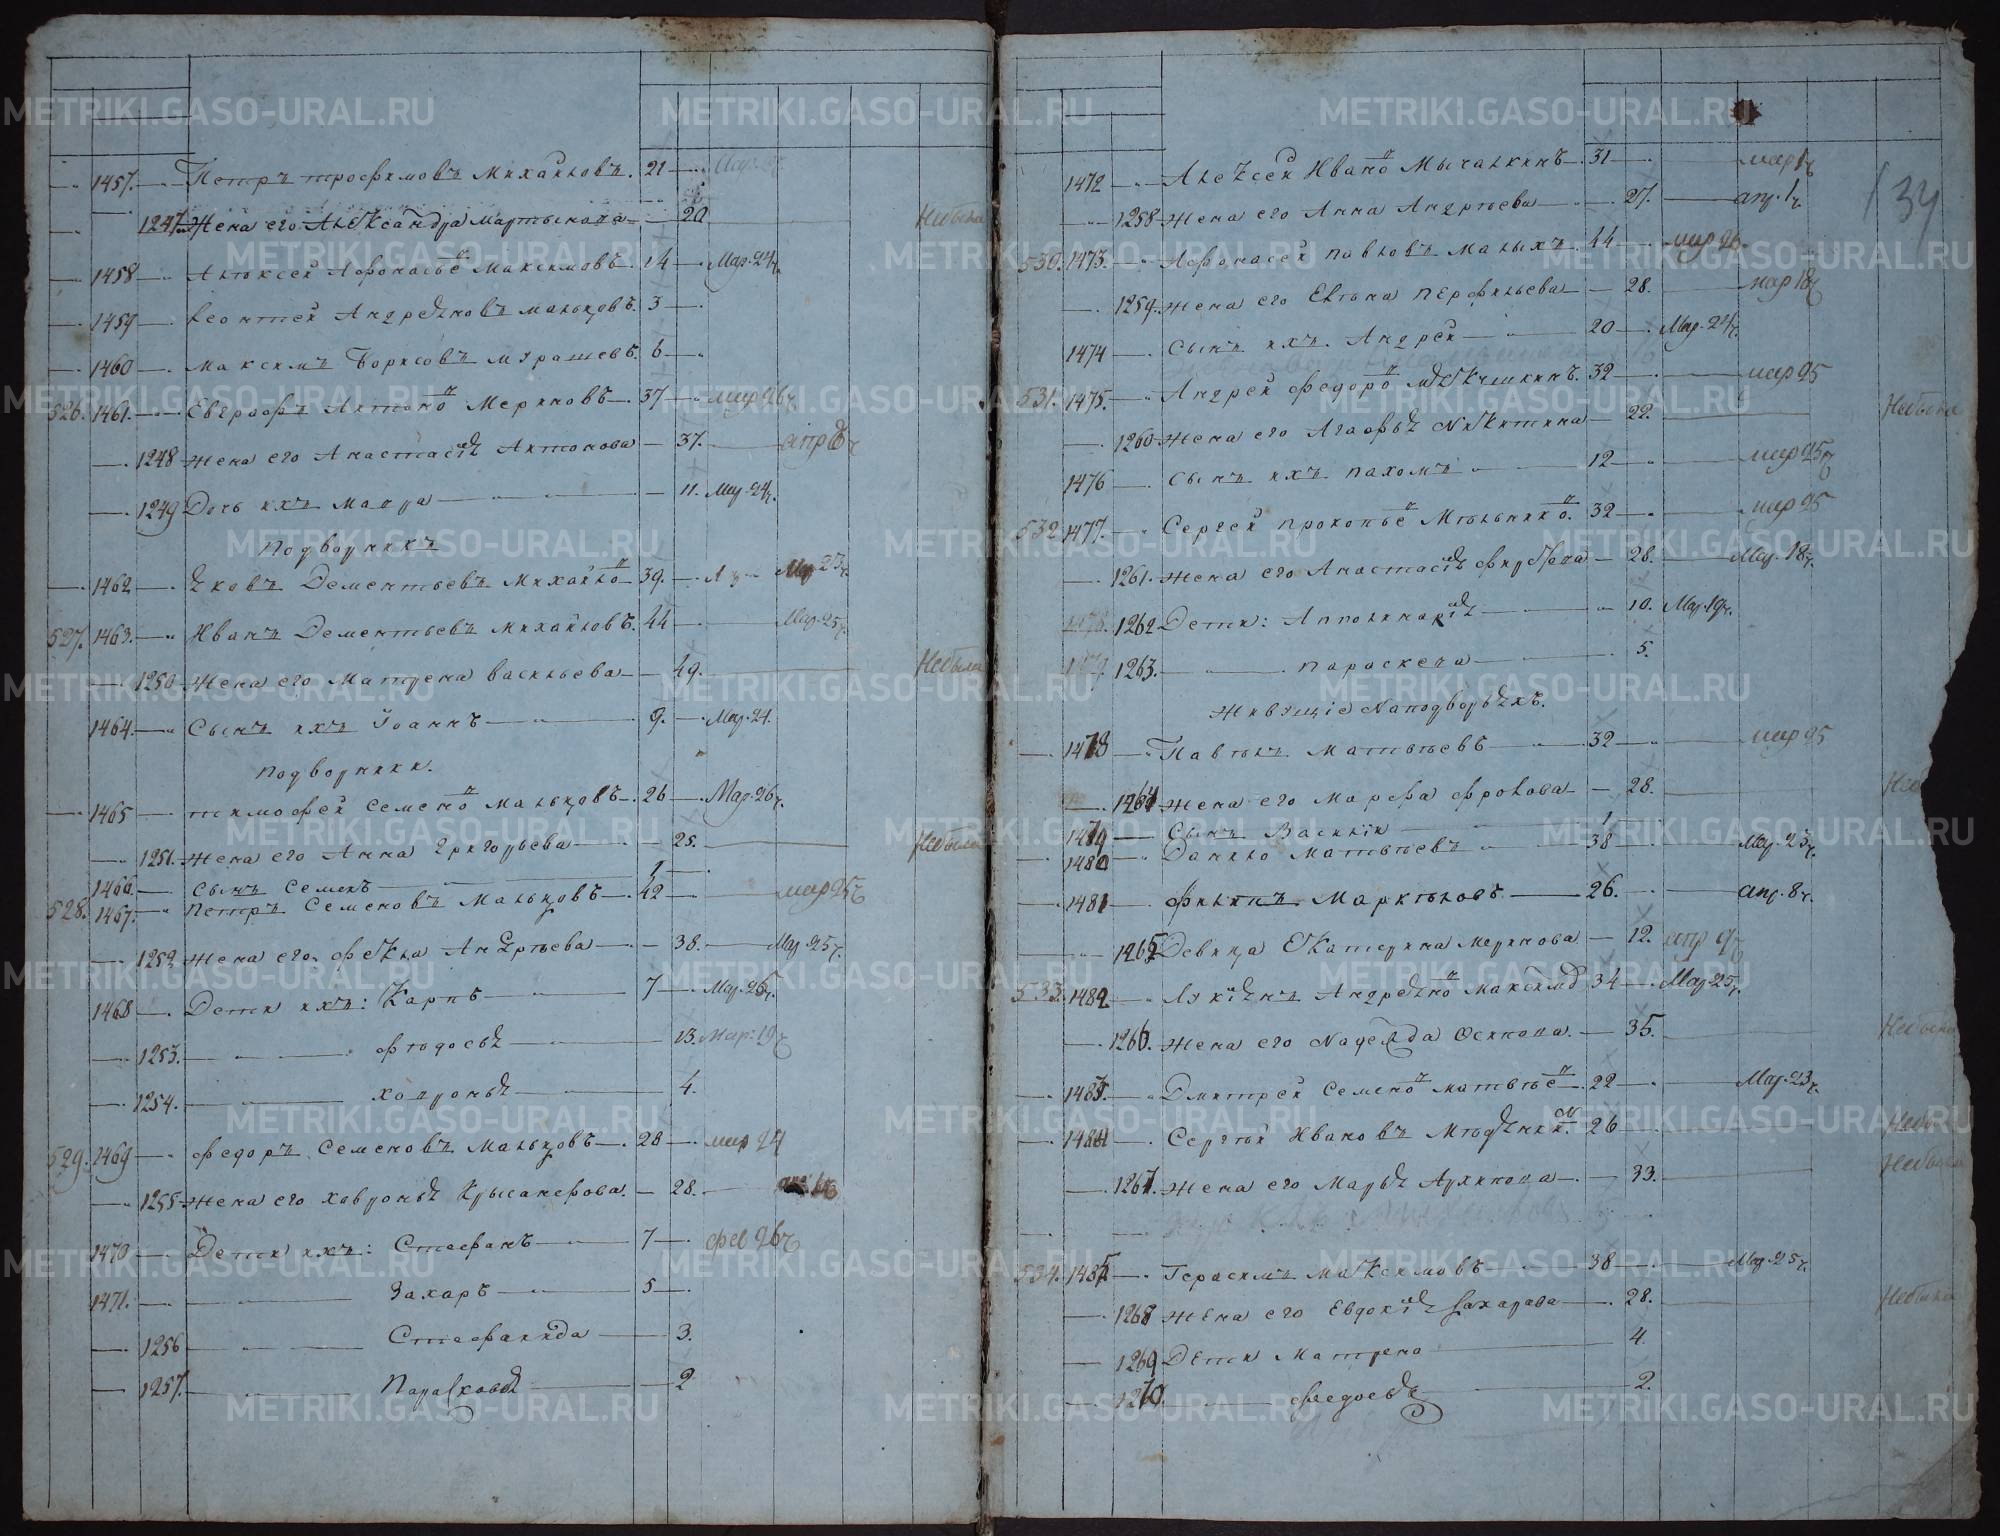 1457. Петръ трофимовъ Михайловъ. 21
1247. Жена его Александра Мартынова 20 Небыла
1458 Алексей Афонасьевъ Максимовъ. 14 Мар. 24
1459 Леонтей Андреяновъ мальцовъ. 3
1460 Максимъ Борисовъ мурашевъ. 6
526. 1461. Евграфъ Антоновъ Мериновъ 37 мар 26
1248 жена его Анастасія Антонова 37. апр 8
1249 Дочь ихъ Мавра 11. Мар. 24
Подворники
1462 Яковъ Дементьевъ Михайло 39. Мар 23
527. 1463. Иванъ Дементьевъ михайловъ. 44 Мар. 25
1250 Жена его Матрена васильева 49. Небыла
1464. Сынъ ихъ Іоаннъ 9. Мар. 21.
подворники.
1465 тимофей семеновъ мальцовъ 26 Мар. 26
1251. жена его Анна Григорьева 25. Небыла
1466. сынъ семенъ 1
528. 1467. Петръ Семеновъ Мальцовъ 42 мар 25
1252 жена его фекла Андреева 38. Мар. 25
1468 Дети ихъ: Карпъ 7 Мар. 26
1253. федосья 13. Мар: 19
1254. хавронья 4.
529. 1469 федоръ Семеновъ Мальцовъ 28 мар 24
1255 жена его хавронья Крысанфова. 28.
1470 Дети ихъ: Стефанъ 7 фев 26
1471. Захаръ 5
1256 Стефанида 3.
1257. Парасковья 2
34
1472 Алексей Ивановъ Мычалкинъ 31 мар
1258 жена его Анна Андреева 27. апр. 1
530. 1473. Афонасей павловъ малыхъ 44 мар 26
1259. жена его Евгена перфильева 28. мар 18
1474 Сынъ ихъ. Андрей 20 Мар. 24
531. 1475. Андрей федоровъ 32 мар 25
1260 жена его Агафья Никитина 22. Небыла
1476 Сынъ ихъ пахомъ 12 мар 25
532 1477. Сергей прокопьевъ Мельниковъ. 32 мар 25
1261. жена его Анастасія 28. Мар. 18
1262 Дети: Апполинарія 10. Мар. 19
1263. параскева 5.
Живущіе Наподворьяхъ.
1478 Павелъ Матвеевъ 32 мар 25
1264 жена его Марфа фролова 28. Неб
1479 Сынъ Василій 1
1480 Данило Матвеевъ 38 Мар. 23
1481 Филипъ Маркеловъ 26. апр. 8
1265 Девица Екатерина меринова 12. апр
533. 1482 Лукіянъ Андреяновъ Максимо 34 Мар. 25
1266. жена его Надежда Осипова. 35. Небыла
1483 Дмитрей Семеновъ матвеевъ 22 Мар. 23
1484 Сергей Ивановъ 26 Небыл
1267. жена его Марья Архипова 33. Небыла
534. 1485 Герасимъ Максимовъ 38 Мар. 25
1268 жена его Евдокія Захарова 28. Небыла
1269 Дети Матрена 4.
1270. федосья 2.
METRIKI.GASO-URAL.RU